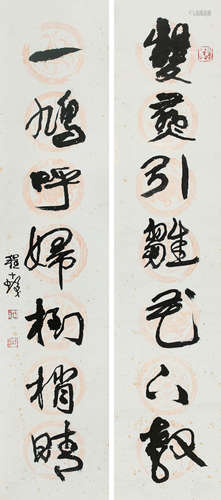 雙燕引雛花下鷇
一鳩呼婦樹梢晴
程十髮